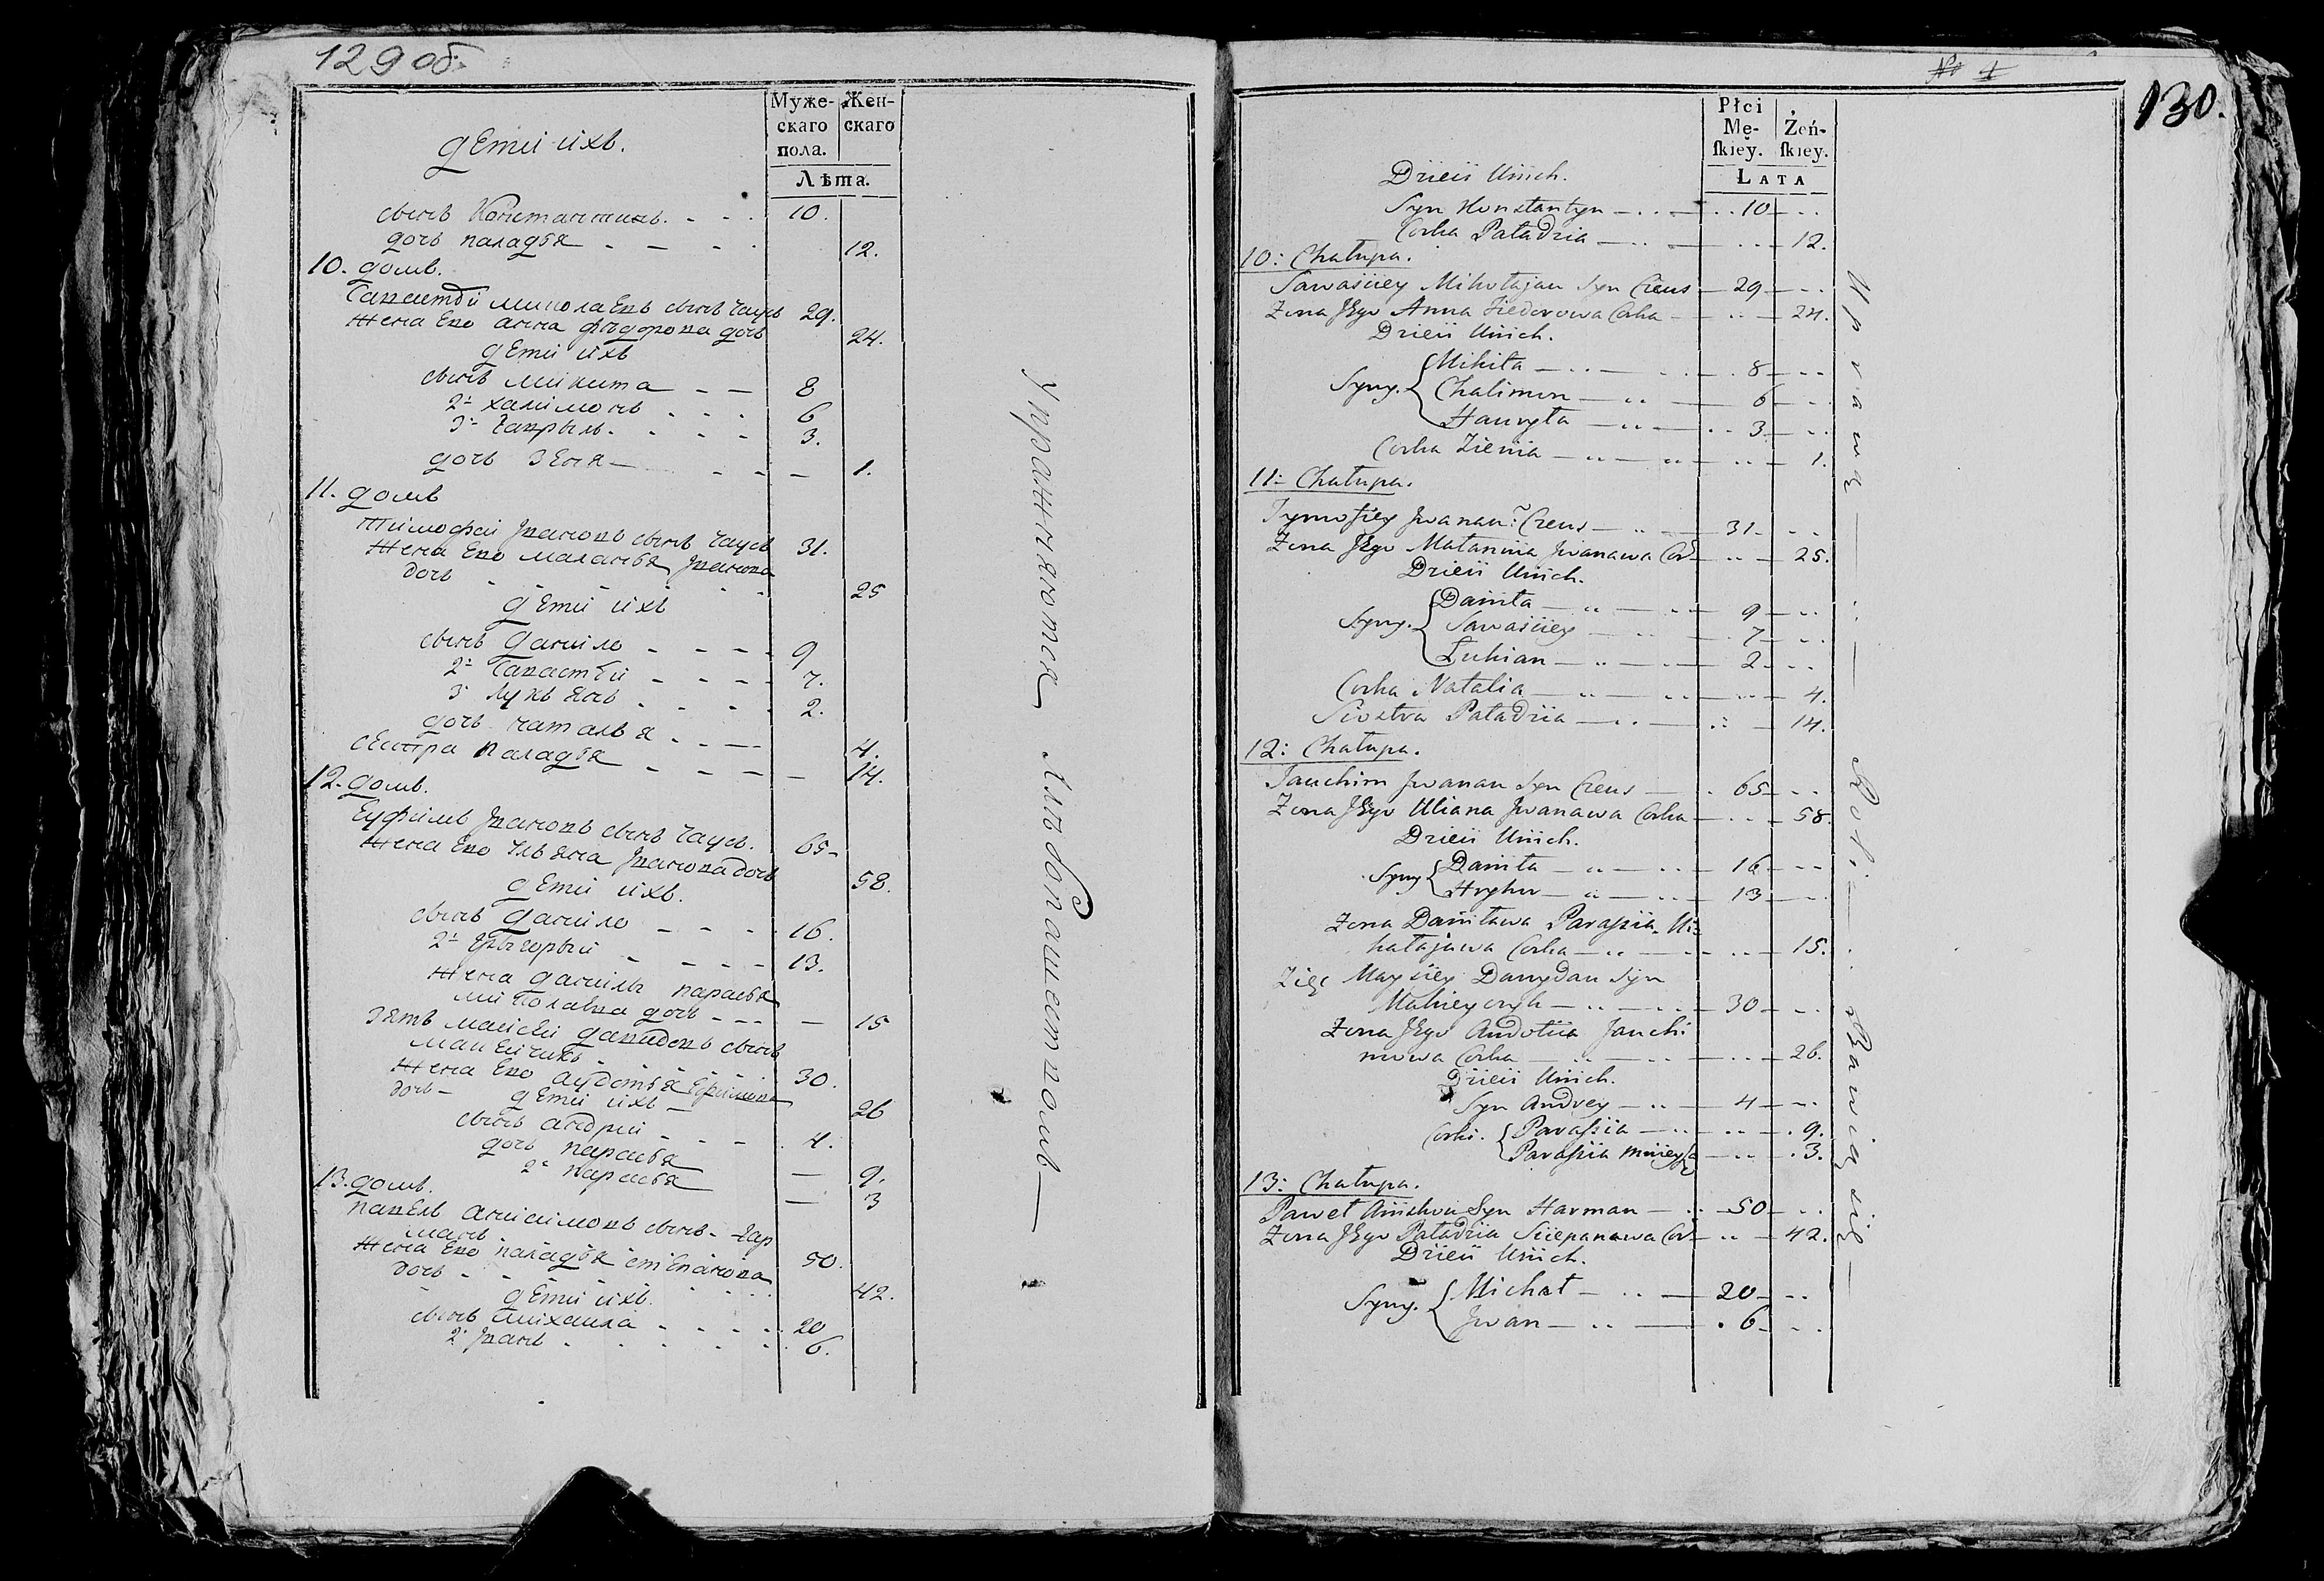 129 об.
Муже- Жен-
скаго скаго
пола.
Лѣта.
дети ихъ.
сынъ Константинъ. - - - 10.
дочь паладья - - - 12.
10. домъ.
Савастей миколаевъ сынъ Чаусъ 29.
жена Ево анна федорова дочь 24.
дети ихъ
сынъ микита - - 8
2й халимонъ - - - 6
3й Гаврыль - - - 3.
дочь Зеня - - - 1.
11. домъ
Тимофей Ивановъ сынъ Чаусъ 31.
жена Ево маланья Иванова
дочь - - - 25
дети ихъ
сынъ данило - - - 9
2й Савастей - - - 7.
3й Лукьянъ - - - 2.
дочь наталья - - - 4.
сестра паладья - - - 14.
12. домъ.
Еуфимъ Ивановъ сынъ Чаусъ. 65-
жена Ево Ульяна Иванова дочь 58.
дети ихъ.
сынъ данило - - - 16.
2й Грыгорый - - - 13.
жена данилы парасья
миколаева дочь - - - 15
Зять маисей давидовъ сынъ
- - - 30.
жена Ево аудотья Ефимова
дочь - 26
дети ихъ -
сынъ андрей - - - 4.
дочь парасья - 9.
2я парасья - 3
13. домъ.
павелъ анисимовъ сынъ - Гар
манъ - - - 50.
жена Ево паладья степанова
дочь - - - 42.
дети ихъ.
сынъ михаила - - - 20
2й Иванъ - - - 6.
Упражняются хлебопашествомъ —
№ 4
130.
Płci
Mę- Żeń-
ſkiey. ſkiey.
LATA
Dzieci Unich.
Syn Konstantyn — 10 —
Corka Paładzia — 12.
10: Chałupa.
Sawasciey Mikołajau Syn Czeus — 29 —
Żona Jego Anna Fiedorowa Corka — 24.
Dzieci Unich.
Syny. { Mikita — 8 —
Chalimon — 6 —
Hauryła — 3 —
Corka Zienia — 1.
11: Chałupa.
Tymofiey Jwanau: Czeus — 31 —
Żona Jego Małannia Jwanawa Cor — 25.
Dzieci Unich.
Syny. { Daniła — 9 —
Sawasciey — 7 —
Łukian — 2 —
Corka Natalia — 4.
Siostra Paładzia — 14.
12: Chałupa.
Jauchim Jwanau Syn Czeus — 65 —
Żona Jego Uliana Jwanawa Corka — 58.
Dzieci Unich.
Syny { Daniła — 16 —
Hryhor — 13 —
Żona Daniława Paraſsia Mi=
kałajawa Corka — 15.
Zięć Maysiey Dawydau Syn
— 30 —
Żona Jego Audotia Jauchi
mowa Corka — 26.
Dzieci Unich.
Syn Andrey — 4 —
Corki. { Paraſsia — 9.
Paraſsia mnieysza — 3.
13: Chałupa.
Paweł Syn Harman — 50 —
Żona Jego Paładzia Sciepanawa Cor — 42.
Dzieci Unich.
Syny. { Michał — 20 —
Jwan — 6 —
Uprawą — Roli — Bawią się —